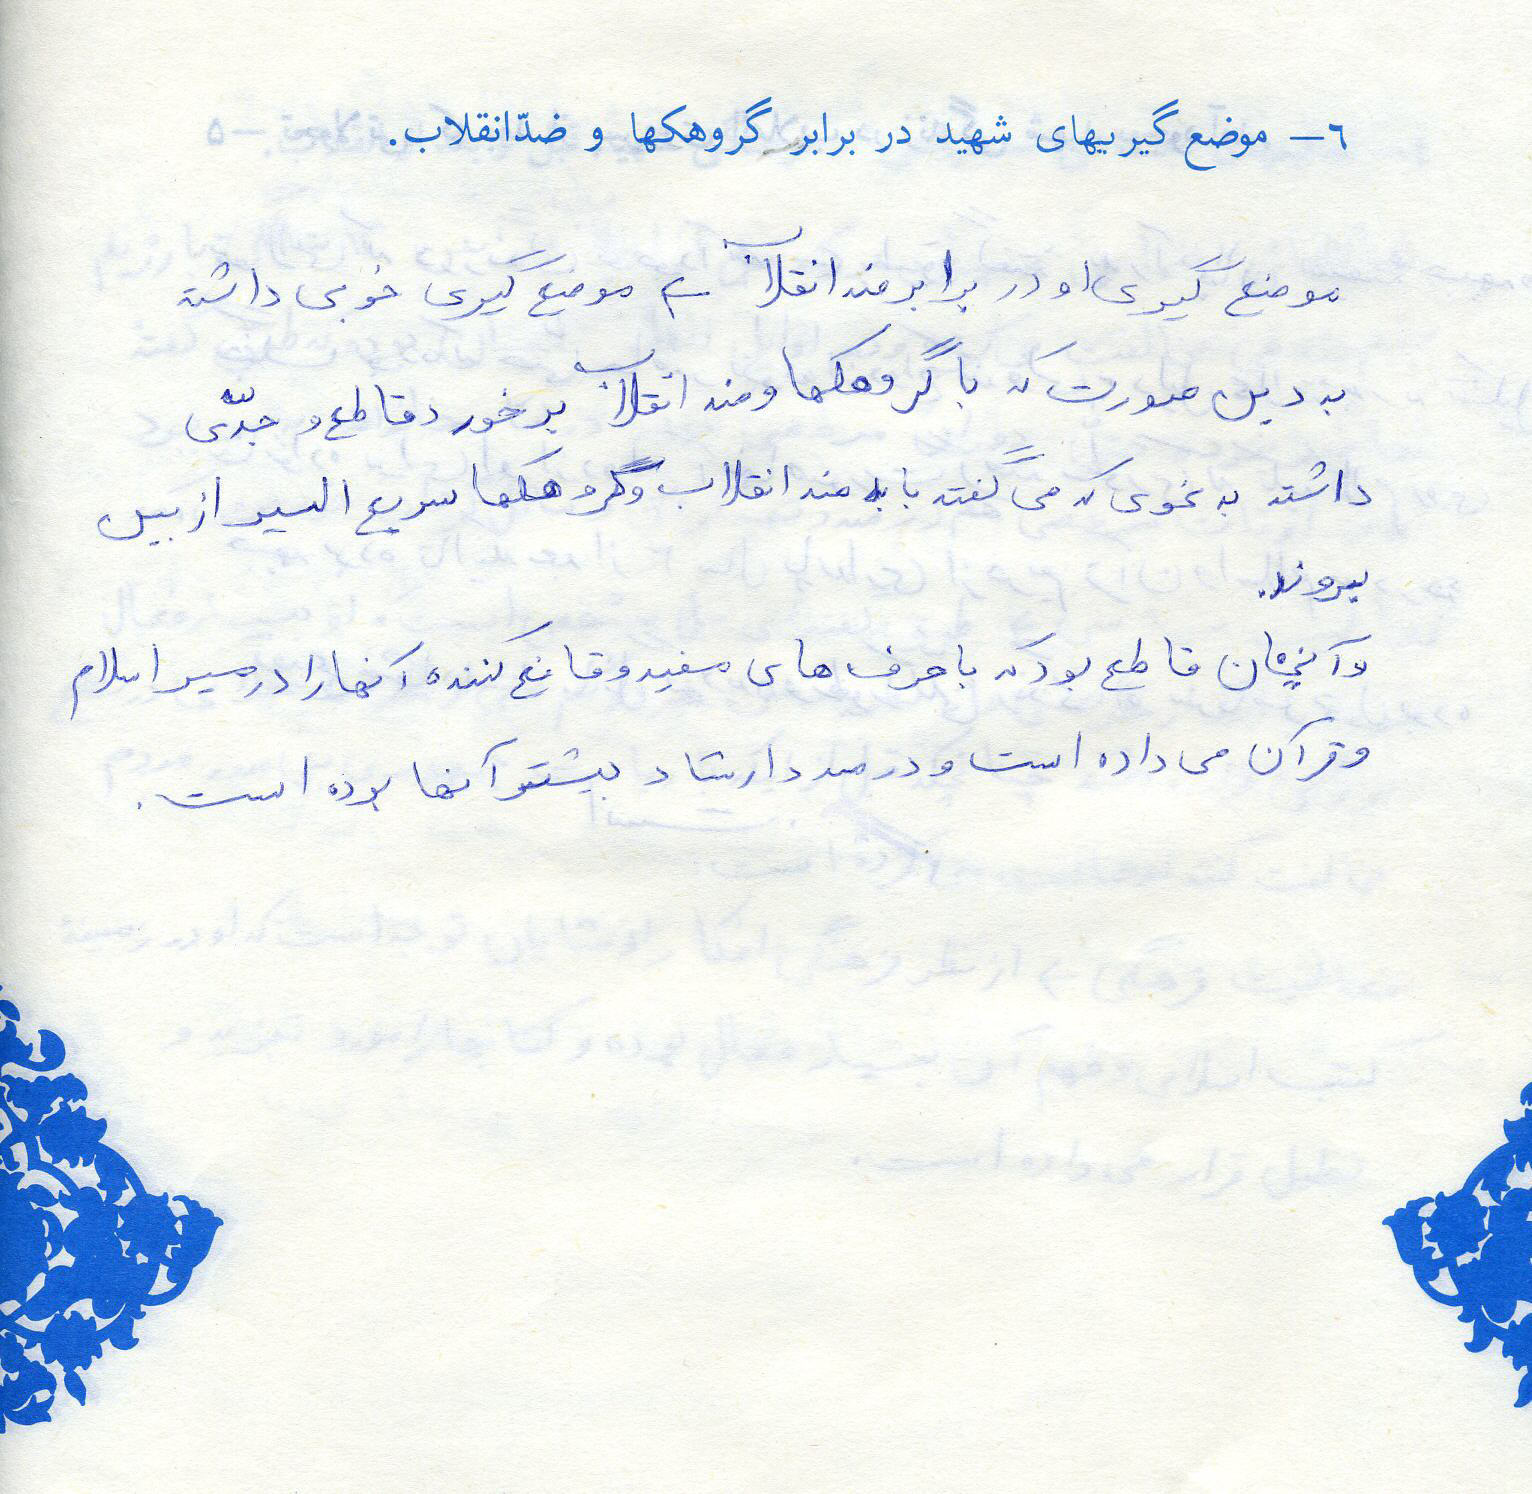 ٦– موضع گیریهای شهید در برابر گروهکها و ضدّانقلاب.
موضع گیری او در برابر ضد انقلاب ← موضع گیری خوبی داشته
به دین صورت که با گروهکها و ضد انقلاب برخورد قاطع و جدّی
داشته به نحوی که می گفته باید ضد انقلاب و گروهکها سریع السیر از بین
بروند.
و آنچنان قاطع بود که با حرف های مفید و قانع کننده آنها را در مسیر اسلام
و قرآن می داده است و در صدد ارشاد بیشتر آنها بوده است.